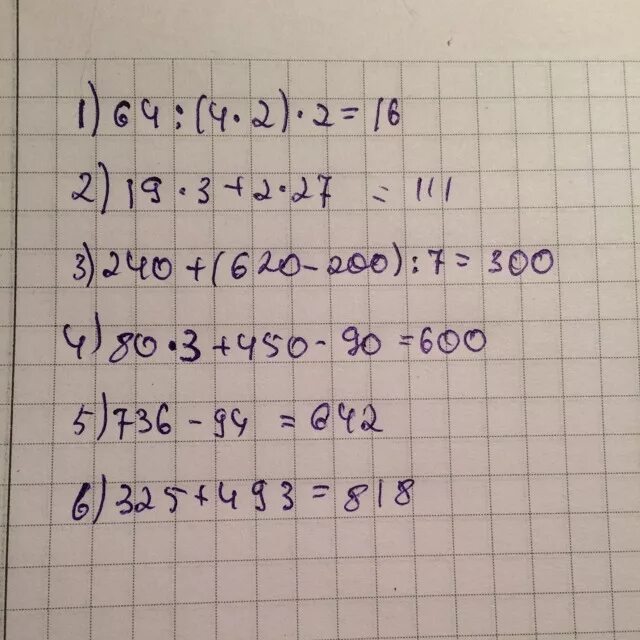 1) 64 : (4 · 2) · 2 = 16
2) 19 · 3 + 2 · 27 = 111
3) 240 + (620 - 200) : 7 = 300
4) 80 · 3 + 450 - 90 = 600
5) 736 - 94 = 642
6) 325 + 493 = 818